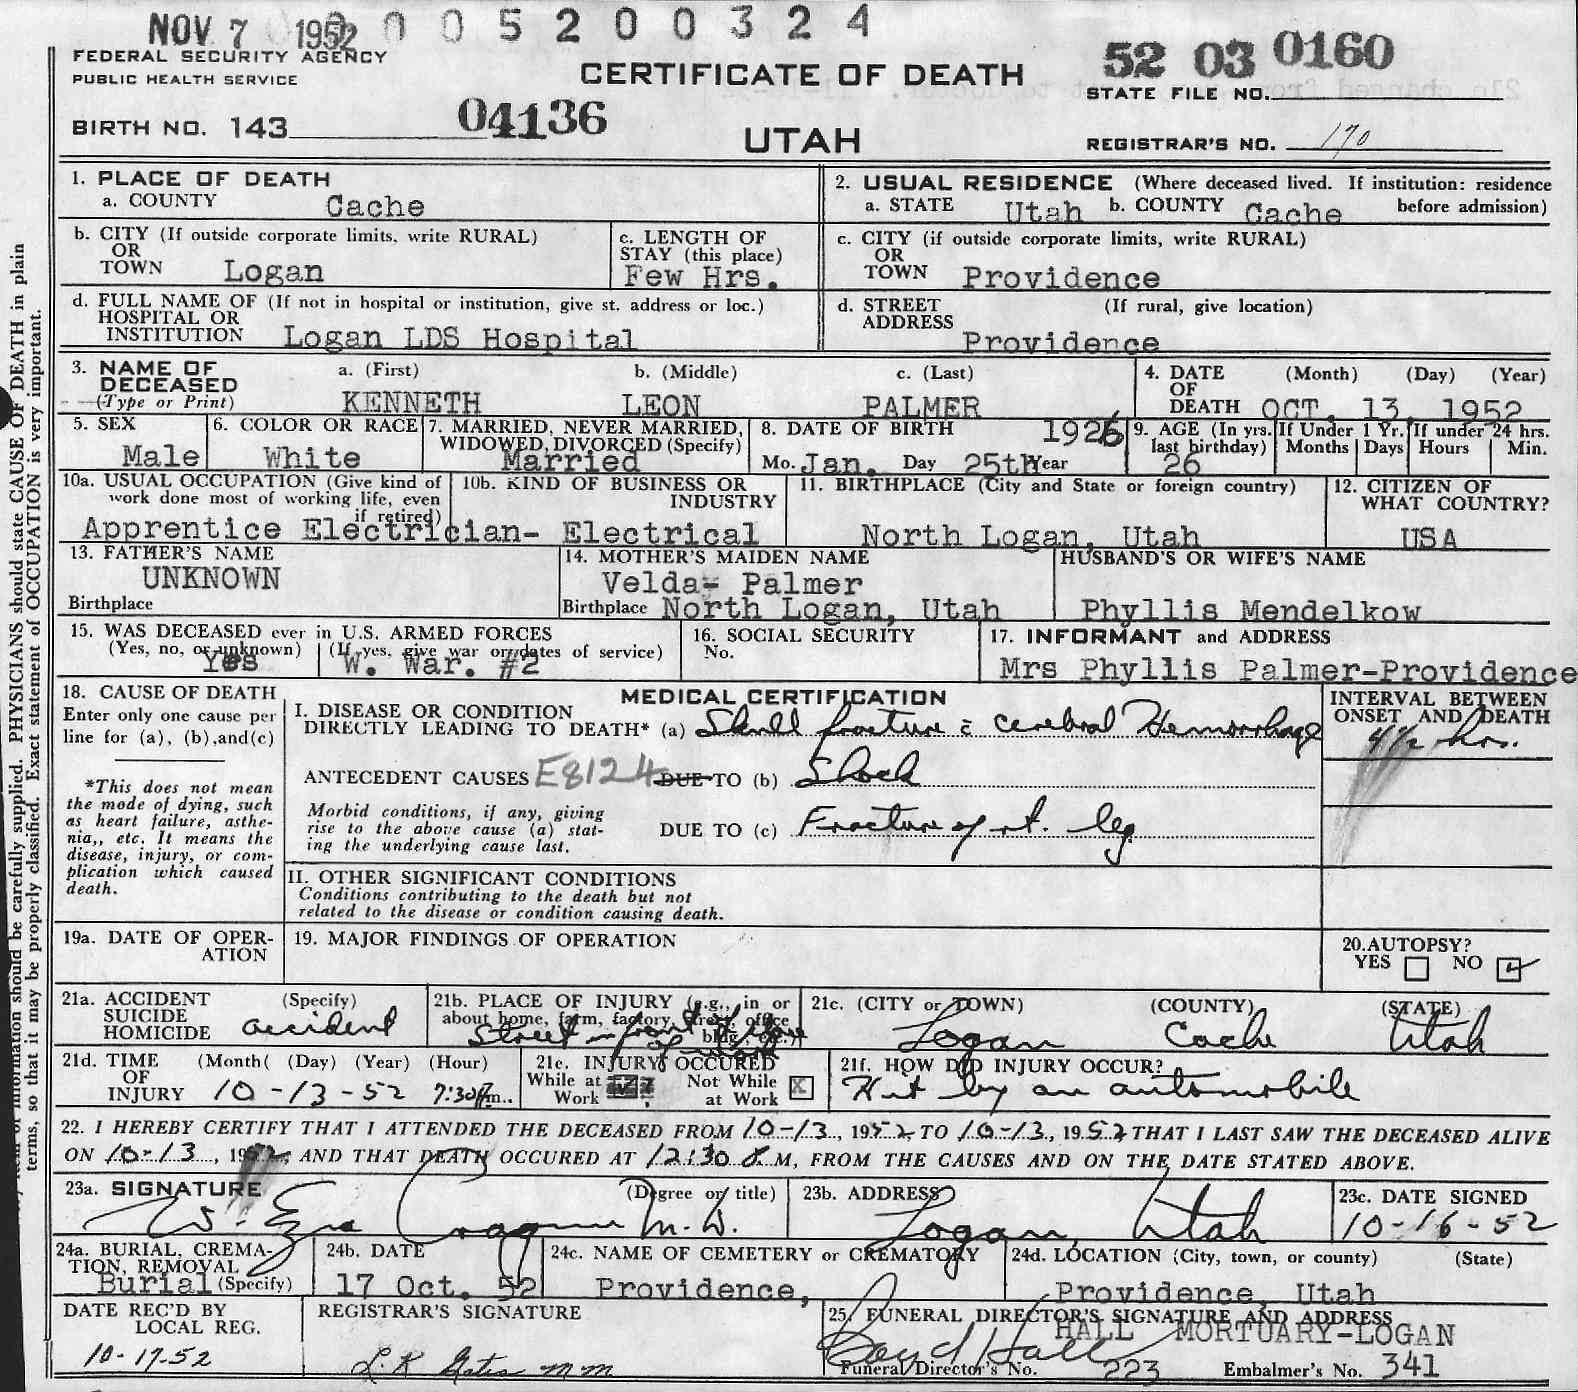 NOV 7 1952 0 0 5 2 0 0 3 2 4
FEDERAL SECURITY AGENCY
PUBLIC HEALTH SERVICE
CERTIFICATE OF DEATH
52 03 0160
STATE FILE NO.
BIRTH NO. 143 04136
UTAH
REGISTRAR'S NO. 170
1. PLACE OF DEATH
a. COUNTY Cache
2. USUAL RESIDENCE (Where deceased lived. If institution: residence before admission)
a. STATE Utah b. COUNTY Cache
b. CITY (If outside corporate limits, write RURAL)
OR
TOWN Logan
c. LENGTH OF
STAY (this place)
Few Hrs.
c. CITY (if outside corporate limits, write RURAL)
OR
TOWN Providence
d. FULL NAME OF (If not in hospital or institution, give st. address or loc.)
HOSPITAL OR
INSTITUTION Logan LDS Hospital
d. STREET (If rural, give location)
ADDRESS
Providence
3. NAME OF
DECEASED
(Type or Print)
a. (First) b. (Middle) c. (Last)
KENNETH LEON PALMER
4. DATE (Month) (Day) (Year)
OF
DEATH OCT. 13, 1952
5. SEX
Male
6. COLOR OR RACE
White
7. MARRIED, NEVER MARRIED,
WIDOWED, DIVORCED (Specify)
Married
8. DATE OF BIRTH 1926
Mo. Jan. Day 25th Year
9. AGE (In yrs.
last birthday)
26
If Under 1 Yr.
Months Days
If under 24 hrs.
Hours Min.
10a. USUAL OCCUPATION (Give kind of
work done most of working life, even
if retired)
Apprentice Electrician-
10b. KIND OF BUSINESS OR
INDUSTRY
Electrical
11. BIRTHPLACE (City and State or foreign country)
North Logan, Utah
12. CITIZEN OF
WHAT COUNTRY?
USA
13. FATHER'S NAME
UNKNOWN
Birthplace
14. MOTHER'S MAIDEN NAME
Velda- Palmer
Birthplace North Logan, Utah
HUSBAND'S OR WIFE'S NAME
Phyllis Mendelkow
15. WAS DECEASED ever in U.S. ARMED FORCES
(Yes, no, or unknown) (If yes, give war or dates of service)
Yes W. War. #2
16. SOCIAL SECURITY
No.
17. INFORMANT and ADDRESS
Mrs Phyllis Palmer-Providence
18. CAUSE OF DEATH
Enter only one cause per
line for (a), (b),and(c)
*This does not mean
the mode of dying, such
as heart failure, asthe-
nia,, etc. It means the
disease, injury, or com-
plication which caused
death.
MEDICAL CERTIFICATION
I. DISEASE OR CONDITION
DIRECTLY LEADING TO DEATH* (a) Skull fracture c cerebral Hemorrhage
ANTECEDENT CAUSES E8124 DUE TO (b) Shock
Morbid conditions, if any, giving
rise to the above cause (a) stat-
ing the underlying cause last.
DUE TO (c) Fracture of rt. leg
INTERVAL BETWEEN
ONSET AND DEATH
4½ hrs.
II. OTHER SIGNIFICANT CONDITIONS
Conditions contributing to the death but not
related to the disease or condition causing death.
19a. DATE OF OPER-
ATION
19. MAJOR FINDINGS OF OPERATION
20. AUTOPSY?
YES NO
21a. ACCIDENT (Specify)
SUICIDE
HOMICIDE accident
21b. PLACE OF INJURY (e.g., in or
about home, farm, factory, street, office
bldg., etc.)
Street in front of place
of work
21c. (CITY or TOWN) (COUNTY) (STATE)
Logan Cache Utah
21d. TIME (Month( (Day) (Year) (Hour)
OF
INJURY 10-13-52 7:30 m..
21e. INJURY OCCURED
While at Work Not While at Work X
21f. HOW DID INJURY OCCUR?
Hit by an automobile
22. I HEREBY CERTIFY THAT I ATTENDED THE DECEASED FROM 10-13, 1952 TO 10-13, 1952 THAT I LAST SAW THE DECEASED ALIVE
ON 10-13, 1952, AND THAT DEATH OCCURED AT 12:30 M, FROM THE CAUSES AND ON THE DATE STATED ABOVE.
23a. SIGNATURE (Degree or title)
W. M.D.
23b. ADDRESS
Logan, Utah
23c. DATE SIGNED
10-16-52
24a. BURIAL, CREMA-
TION, REMOVAL
Burial (Specify)
24b. DATE
17 Oct. 52
24c. NAME OF CEMETERY or CREMATORY
Providence,
24d. LOCATION (City, town, or county) (State)
Providence, Utah
DATE REC'D BY
LOCAL REG.
10-17-52
REGISTRAR'S SIGNATURE
25. FUNERAL DIRECTOR'S SIGNATURE AND ADDRESS
HALL MORTUARY-LOGAN
Boyd Hall
Funeral Director's No. 223 Embalmer's No. 341
information should be carefully supplied. PHYSICIANS should state CAUSE OF DEATH in plain
terms, so that it may be properly classified. Exact statement of OCCUPATION is very important.